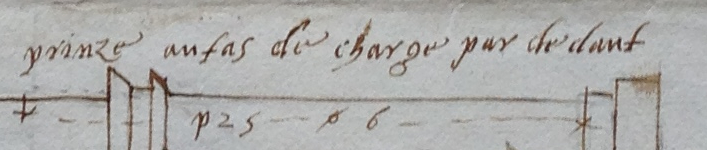 prinze au fas de charge par dedant
p 25 — p 6